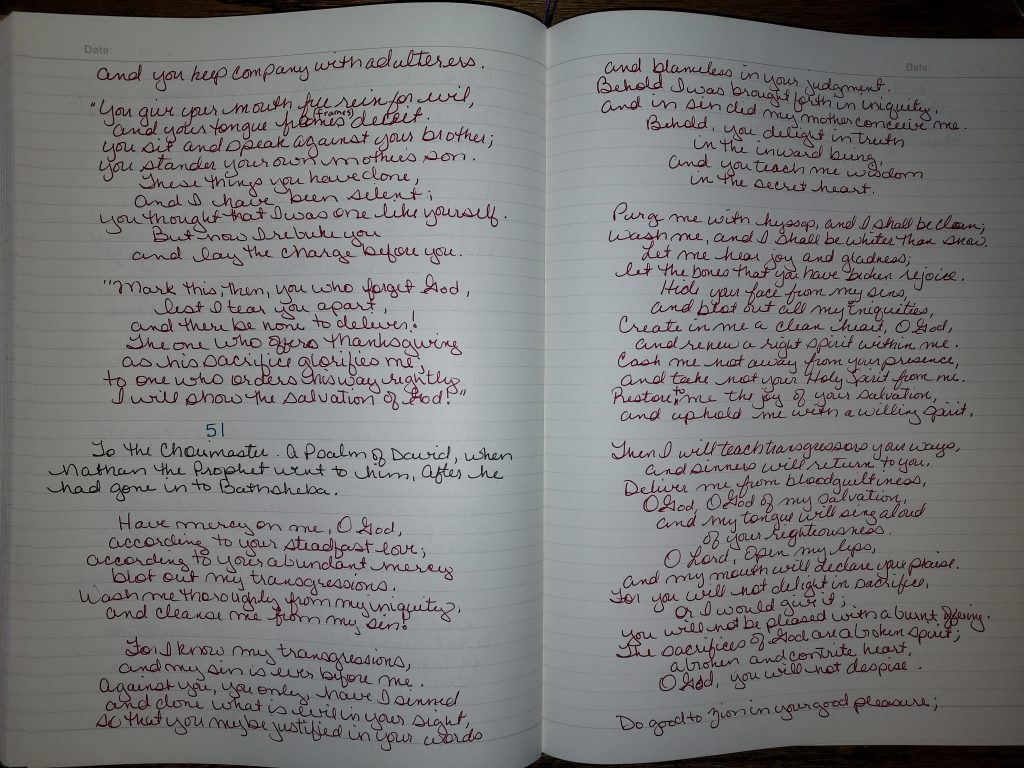 Date:
and you keep company with adulterers.
"You give your mouth free rein for evil,
(frames)
and your tongue frames deceit.
you sit and speak against your brother;
you slander your own mother's son.
These things you have done,
and I have been silent;
you thought that I was one like yourself.
But now I rebuke you
and lay the charge before you.
"Mark this, then, you who forget God,
lest I tear you apart,
and there be none to deliver!
The one who offers thanksgiving
as his sacrifice glorifies me;
to one who orders his way rightly
I will show the salvation of God!"
51
To the Choirmaster. A Psalm of David, when
Nathan the Prophet went to him, after he
had gone in to Bathsheba.
Have mercy on me, O God,
according to your steadfast love;
according to your abundant mercy
blot out my transgressions.
Wash me thoroughly from my iniquity,
and cleanse me from my sin!
For I know my transgressions,
and my sin is ever before me.
Against you, you only, have I sinned
and done what is evil in your sight,
so that you may be justified in your words
Date:
and blameless in your judgment.
Behold I was brought forth in iniquity,
and in sin did my mother conceive me.
Behold, you delight in truth
in the inward being,
and you teach me wisdom
in the secret heart.
Purge me with hyssop, and I shall be clean;
wash me, and I shall be whiter than snow.
Let me hear joy and gladness;
let the bones that you have broken rejoice.
Hide your face from my sins,
and blot out all my iniquities,
Create in me a clean heart, O God,
and renew a right spirit within me.
Cash me not away from your presence,
and take not your Holy Spirit from me.
Restore to me the joy of your salvation,
and uphold me with a willing spirit.
Then I will teach transgressors your ways,
and sinners will return to you.
Deliver me from bloodguiltiness,
O God, O God of my salvation,
and my tongue will sing aloud
of your righteousness.
O Lord, open my lips,
and my mouth will declare your praise.
For you will not delight in sacrifice,
or I would give it;
you will not be pleased with a burnt offering.
The sacrifices of God are a broken spirit;
a broken and contrite heart,
O God, you will not despise.
Do good to Zion in your good pleasure;